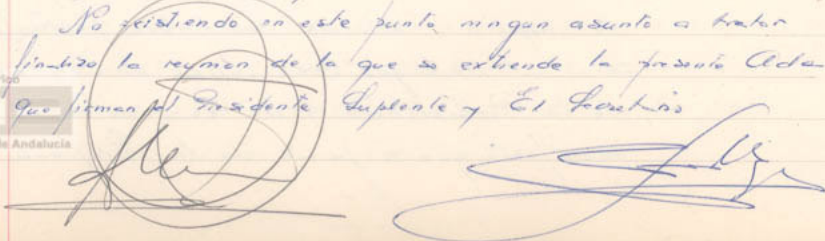 No existiendo en este punto ningun asunto a tratar
finalizo la reunion de la que se extiende la presente Acta
que firman el Presidente Suplente y El Secretario
de Andalucía